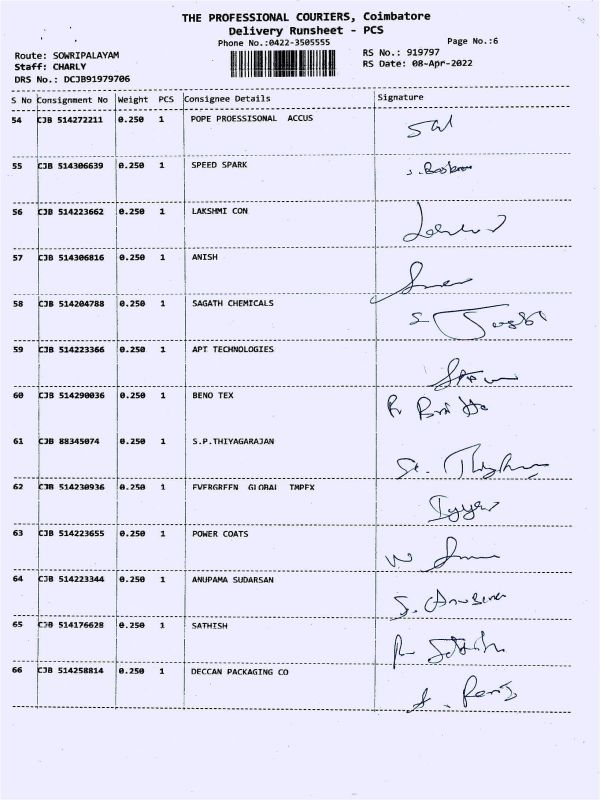 THE PROFESSIONAL COURIERS, Coimbatore
Delivery Runsheet - PCS
Phone No.:0422-3505555
Page No.:6
Route: SOWRIPALAYAM
RS No.: 919797
Staff: CHARLY
RS Date: 08-Apr-2022
DRS No.: DCJB91979706
S No Consignment No Weight PCS Consignee Details Signature
54 CJB 514272211 0.250 1 POPE PROESSISONAL ACCUS
55 CJB 514306639 0.250 1 SPEED SPARK
56 CJB 514223662 0.250 1 LAKSHMI CON
57 CJB 514306816 0.250 1 ANISH
58 CJB 514204788 0.250 1 SAGATH CHEMICALS
59 CJB 514223366 0.250 1 APT TECHNOLOGIES
60 CJB 514290036 0.250 1 BENO TEX
61 CJB 88345074 0.250 1 S.P.THIYAGARAJAN
62 CJB 514230936 0.250 1 EVERGREEN GLOBAL IMPEX
63 CJB 514223655 0.250 1 POWER COATS
64 CJB 514223344 0.250 1 ANUPAMA SUDARSAN
65 CJB 514176628 0.250 1 SATHISH
66 CJB 514258814 0.250 1 DECCAN PACKAGING CO